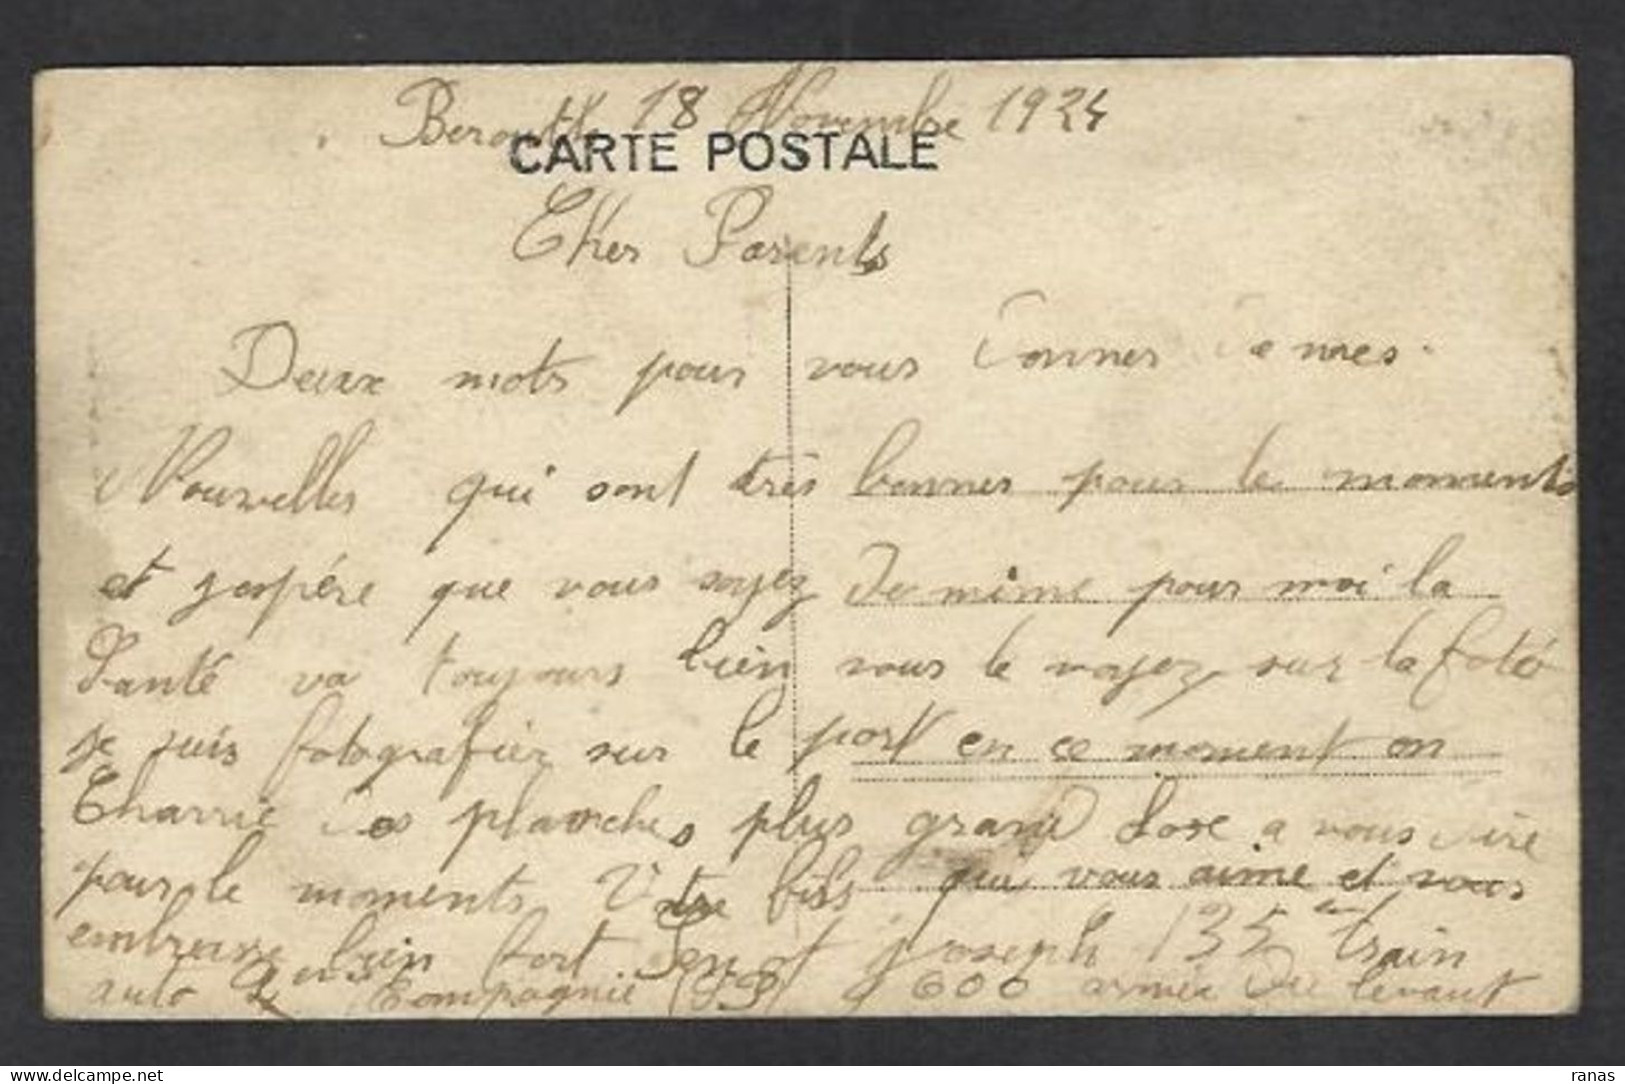 Berouth 18 Novembre 1924
CARTE POSTALE
CHer Parents
Deux mots pour vous donner de mes
Nouvelles qui sont très bonnes pour le moments
et jespére que vous soyez de mème pour moi la
Santé va toujours bien vous le voyez sur la foto
je suis fotografier sur le port en ce moment on
Charrie des planches plus grand chose a vous dire
pour le moments Votre fils qui vous aime et vous
embrasse bien fort joseph 135 train
auto Compagnie 600 armée du levant
ranas